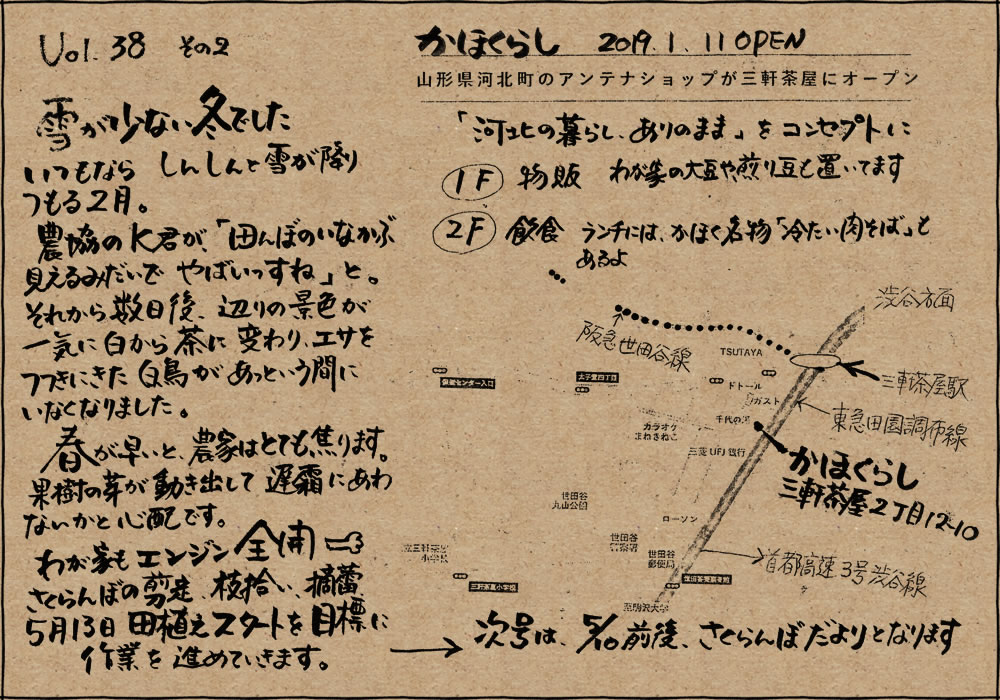 Vol. 38 その2
雪が少ない冬でした
いつもなら しんしんと雪が降り
つもる2月。
農協のK君が、「田んぼのいなかぶ
見えるみだいで やばいっすね」と。
それから数日後、辺りの景色が
一気に白から茶に変わり、エサを
つつきにきた白鳥があっという間に
いなくなりました。
春が早いと、農家はとても焦ります。
果樹の芽が動き出して遅霜にあわ
ないかと心配です。
わが家もエンジン全開
さくらんぼの剪定、枝拾い、摘蕾
5月13日 田植えスタートを目標に
作業を進めていきます。
かほくらし 2019.1.11 OPEN
山形県河北町のアンテナショップが三軒茶屋にオープン
「河北の暮らし、ありのまま」をコンセプトに
1F 物販 わが家の大豆や煎り豆も置いてます
2F 飲食 ランチには、かほく名物「冷たい肉そば」も
あるよ
渋谷方面
阪急世田谷線
TSUTAYA
三軒茶屋駅
太子堂四丁目
ドトール
ガスト
東急田園調布線
千代の
カラオケ
まねきねこ
三菱UFJ銀行
かほくらし
三軒茶屋2丁目12-10
世田谷
丸山公園
ローソン
世田谷
世田谷
郵便局
首都高速3号渋谷線
小学校
至駒沢大学
次号は、5/10前後、さくらんぼだよりとなります